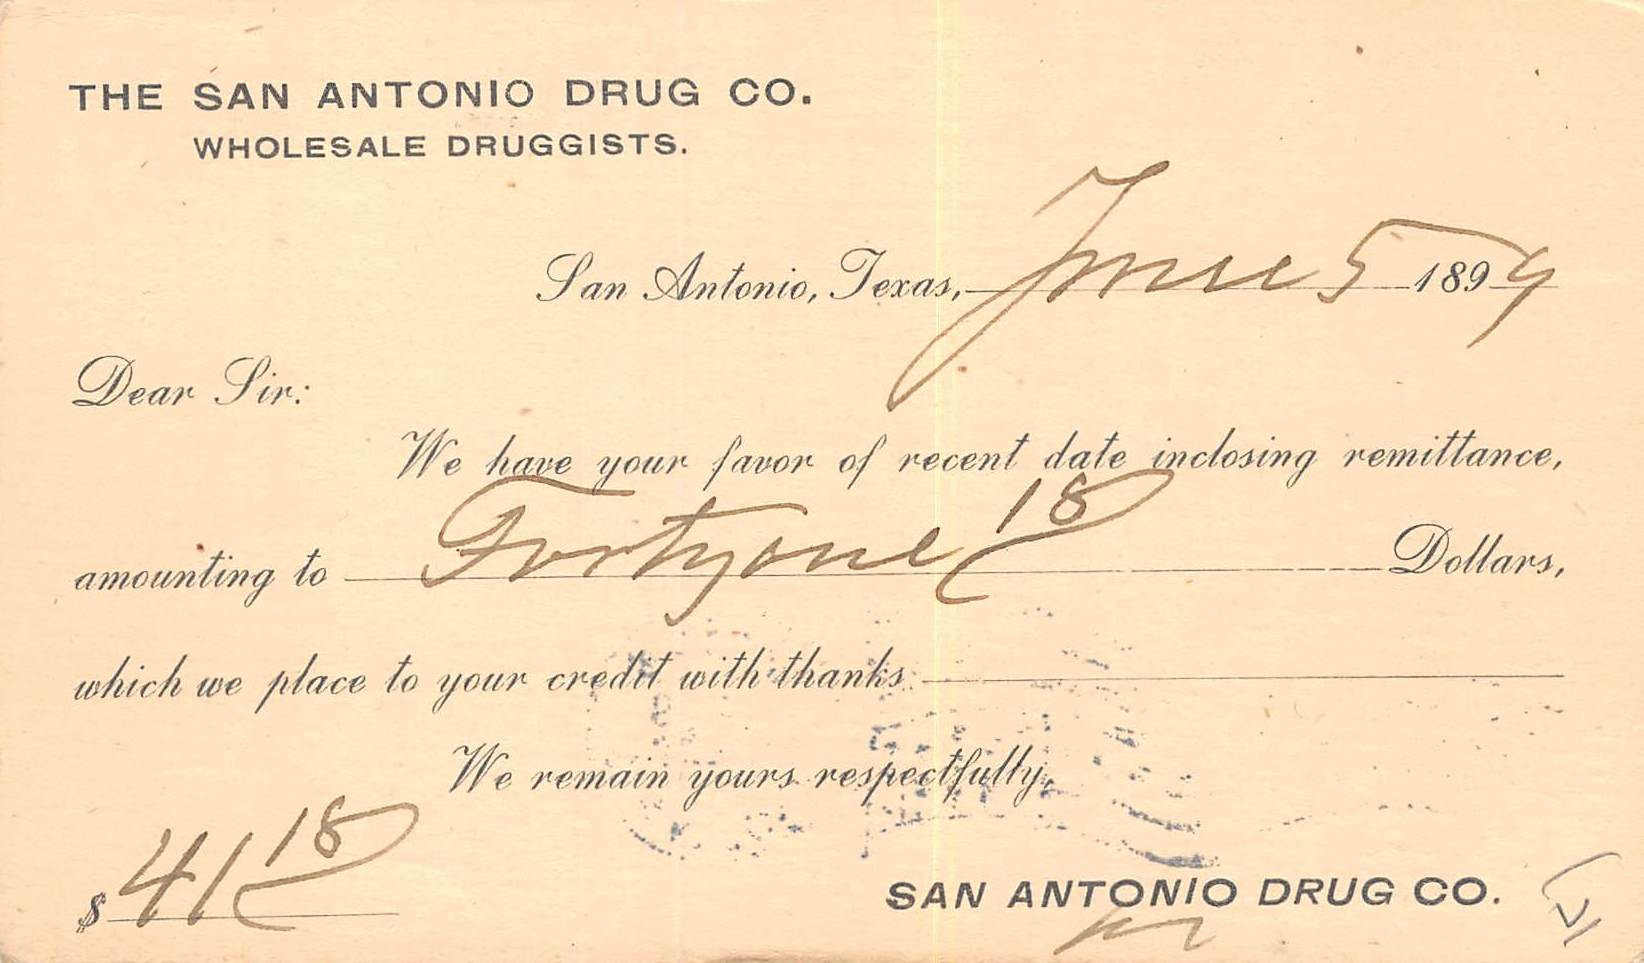 THE SAN ANTONIO DRUG CO.
WHOLESALE DRUGGISTS.
San Antonio, Texas, June 5 1899
Dear Sir:
We have your favor of recent date inclosing remittance,
amounting to Fortyone 18 Dollars,
which we place to your credit with thanks
We remain yours respectfully,
$ 41 18
SAN ANTONIO DRUG CO.